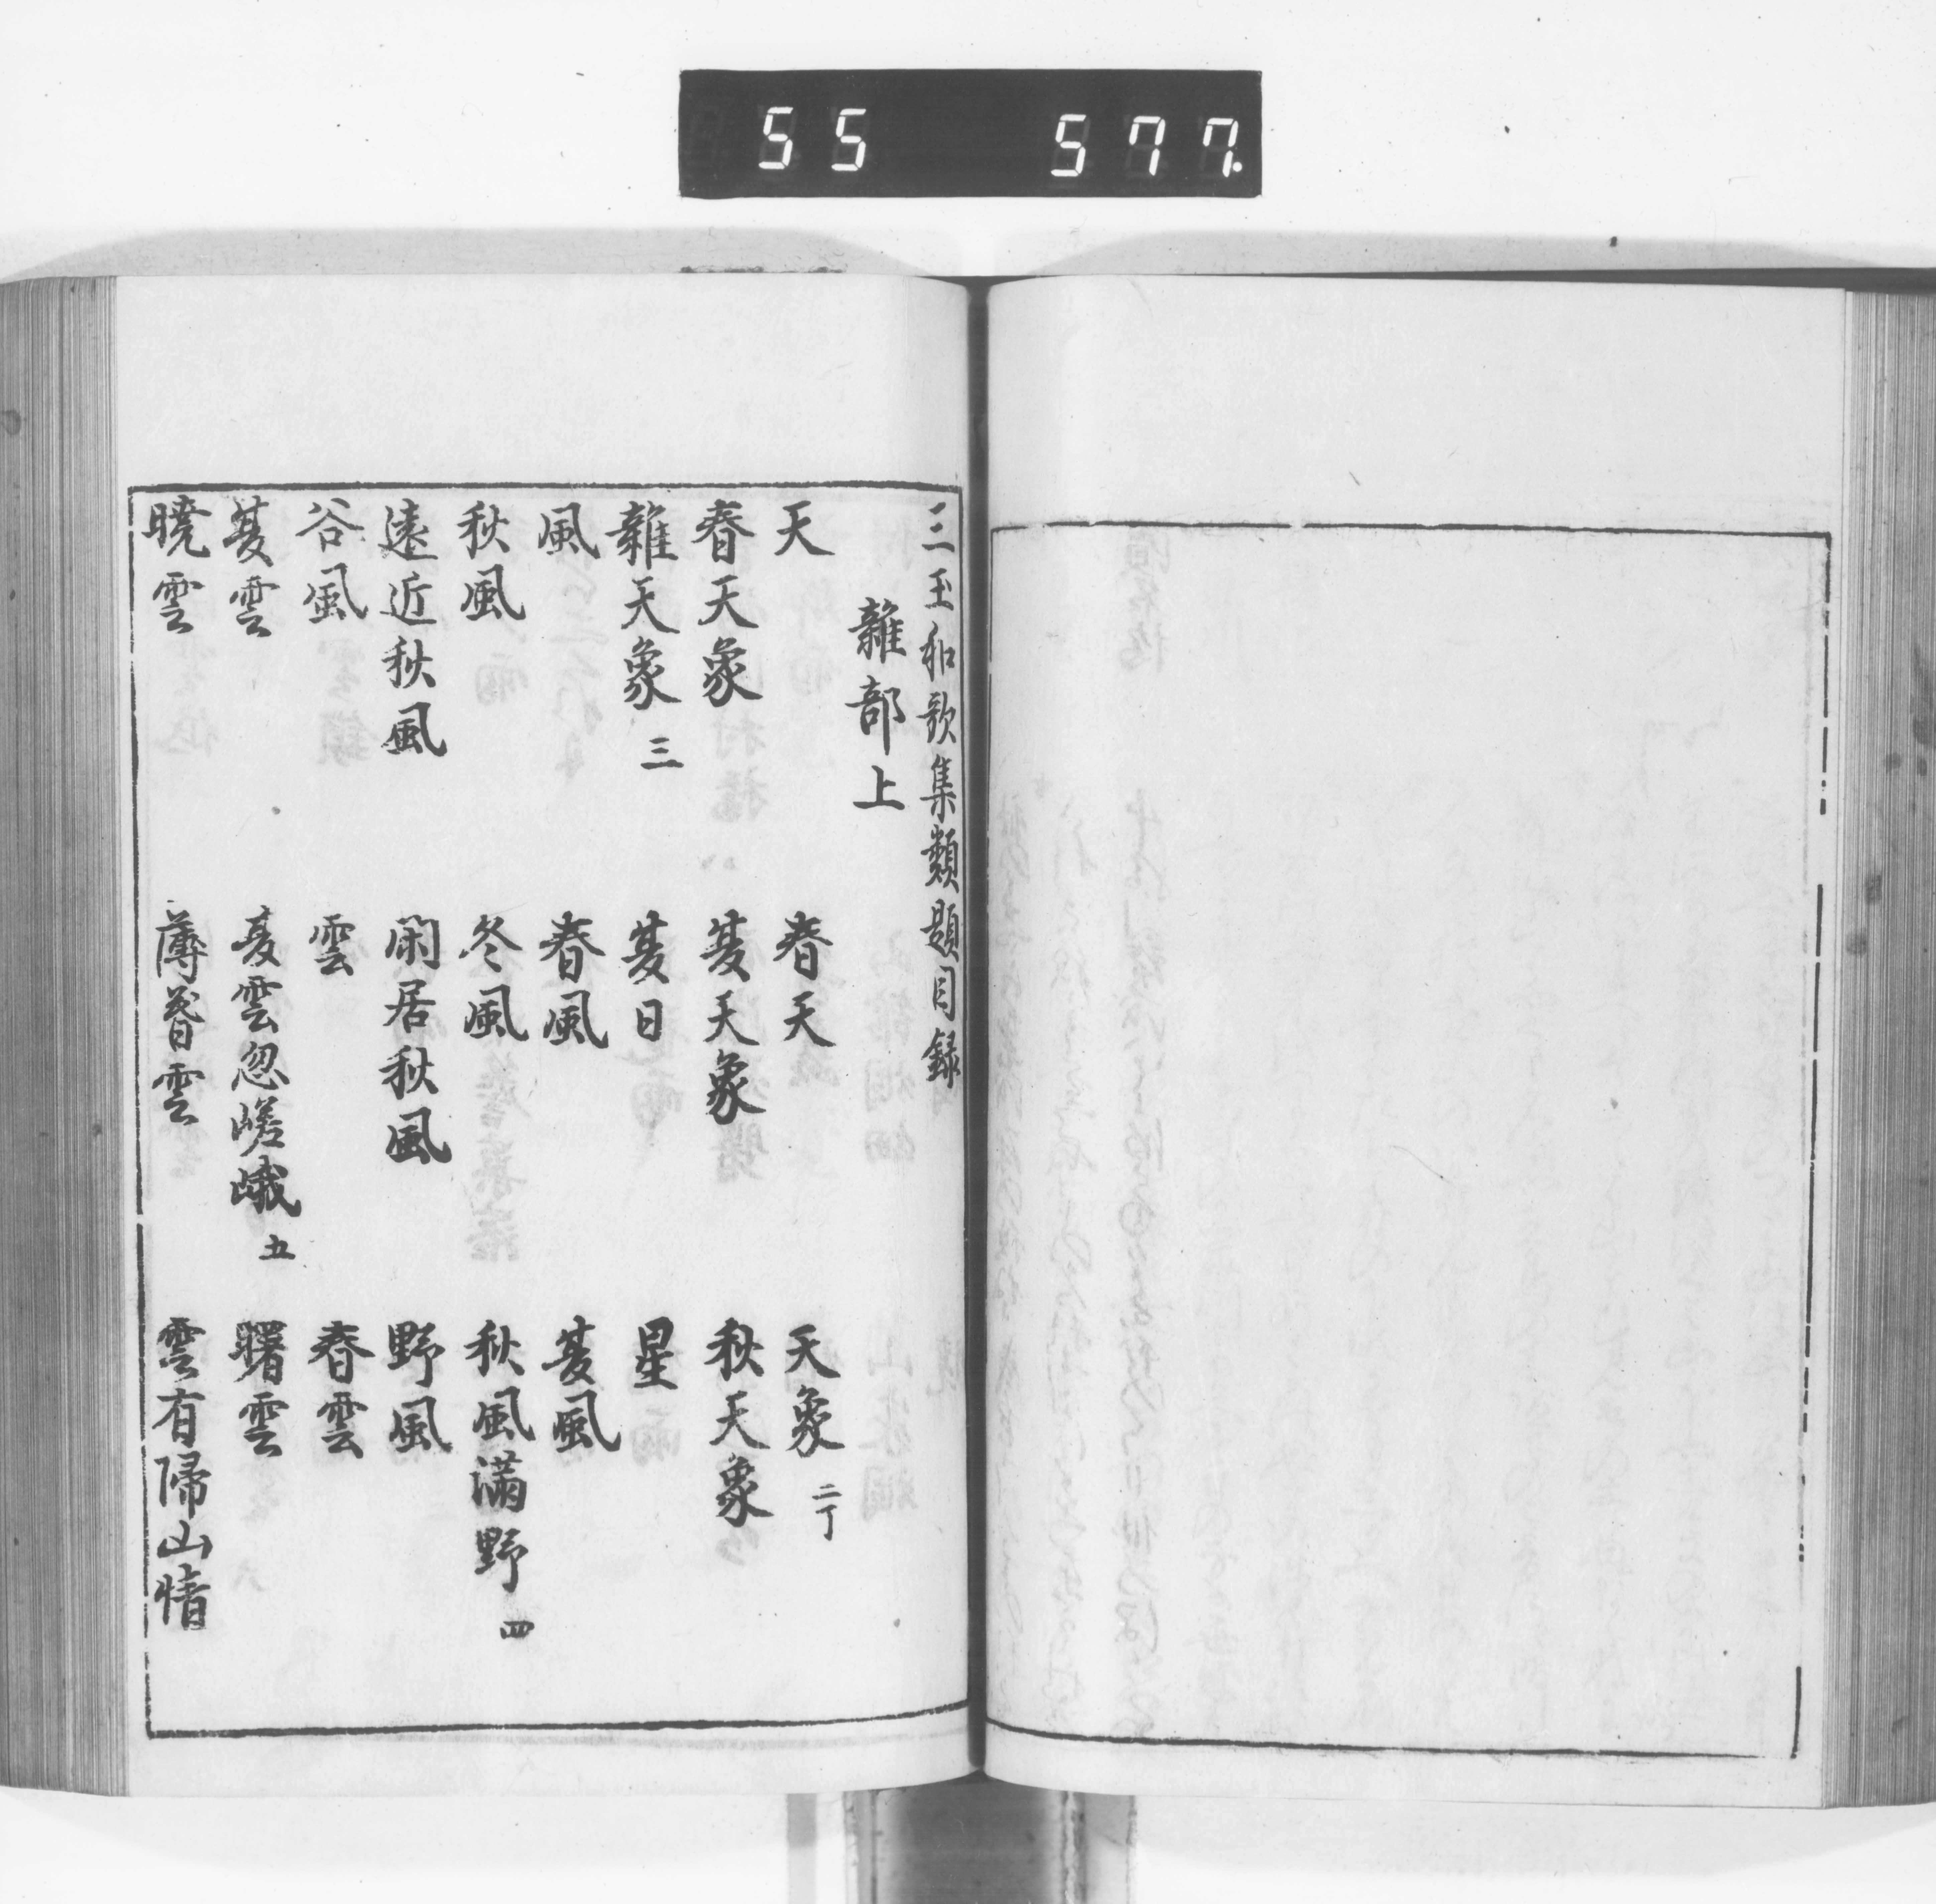 55 577.
三玉和歌集類題目録
雜部上
天 春天 天象 二丁
春天象 夏天象 秋天象
雜天象 三 夏日 星
風 春風 夏風
秋風 冬風 秋風満野 四
遠近秋風 閑居秋風 野風
谷風 雲 春雲
夏雲 夏雲忽嵯峨 五 曙雲
曉雲 薄暮雲 雲有帰山情